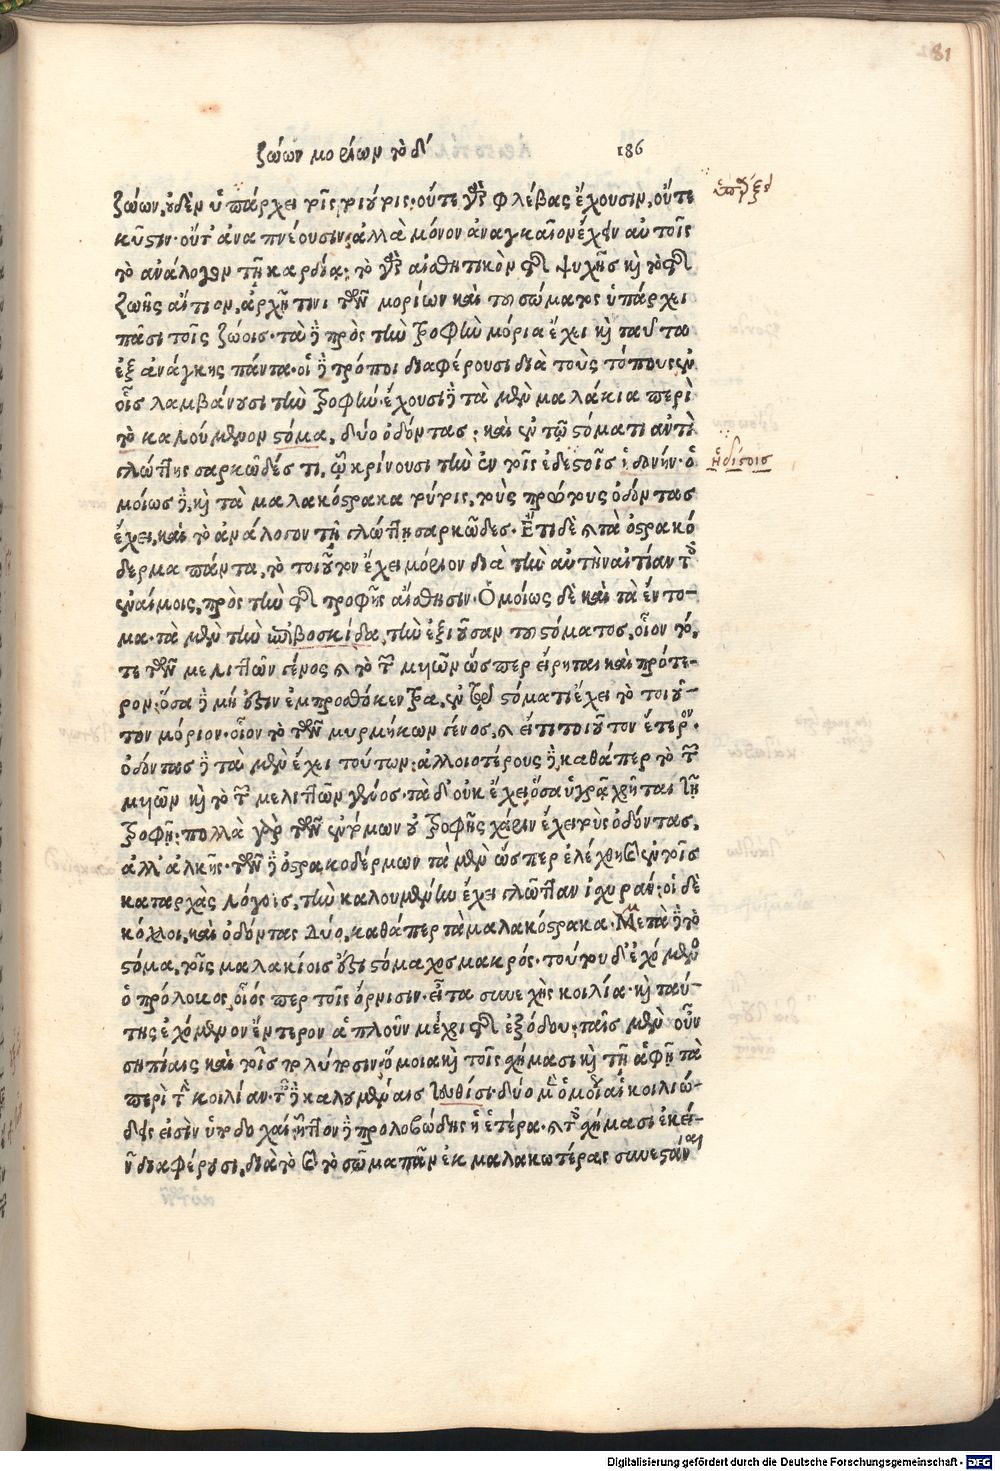 ζώων μορίων τὸ δ´ 186
81
ζώων, οὐδὲν ὑπάρχει τοῖς τοιούτοις· οὔτε γὰρ φλέβας ἔχουσιν, οὔτε
κύστιν· οὔτ' ἀναπνέουσιν· ἀλλὰ μόνον ἀναγκαῖον ἔχειν αὐτοῖς
τὸ ἀνάλογον τῇ καρδίᾳ· τὸ γὰρ αἰσθητικὸν τῆς ψυχῆς καὶ τὸ τῆς
ζωῆς αἴτιον, ἀρχῇ τινι τῶν μορίων καὶ τοῦ σώματος ὑπάρχει
πᾶσι τοῖς ζώοις· τὰ δὲ πρὸς τὴν τροφὴν μόρια ἔχει καὶ ταῦτα
ἐξ ἀνάγκης πάντα· οἱ δὲ τρόποι διαφέρουσι διὰ τοὺς τόπους ἐν
οἷς λαμβάνουσι τὴν τροφήν· ἔχουσι δὲ τὰ μὲν μαλάκια περὶ
τὸ καλούμενον στόμα, δύο ὀδόντας· καὶ ἐν τῷ στόματι ἀντὶ
γλώττης σαρκῶδές τι, ᾧ κρίνουσι τὴν ἐν τοῖς ἐδεστοῖς ἡδονήν· ὁ
μοίως δὲ, καὶ τὰ μαλακόστρακα τούτοις, τοὺς πρώτους ὀδόντας
ἔχει, καὶ τὸ ἀνάλογον τῇ γλώττῃ σαρκῶδες· Ἔτι δὲ καὶ τὰ ὀστρακό
δερμα πάντα, τὸ τοιοῦτον ἔχει μόριον διὰ τὴν αὐτὴν αἰτίαν τοῖς
ἐναίμοις, πρὸς τὴν τῆς τροφῆς αἴσθησιν· Ὁμοίως δὲ καὶ τὰ ἔντο-
μα· τὰ μὲν τὴν ἐπιβοσκίδα, τὴν ἐξιοῦσαν τοῦ στόματος, οἷον τό,
τε τῶν μελιττῶν γένος καὶ τὸ τῶν μυιῶν ὥσπερ εἴρηται καὶ πρότε-
ρον· ὅσα δὲ μή ἐστιν ἐμπροσθόκεντρα, ἐν τῷ στόματι ἔχει τὸ τοιοῦ-
τον μόριον· οἷον τὸ τῶν μυρμήκων γένος, καὶ εἴ τι τοιοῦτον ἕτερον·
ὀδόντας δὲ τὰ μὲν ἔχει τούτων· ἀλλοιοτέρους δὲ, καθάπερ τὸ τῶν
μυιῶν καὶ τὸ τῶν μελιττῶν γένος· τὰ δ' οὐκ ἔχει ὅσα ὑγρᾷ χρῆται τῇ
τροφῇ· πολλὰ γὰρ τῶν ἐντόμων οὐ τροφῆς χάριν ἔχει τοὺς ὀδόντας,
ἀλλ' ἀλκῆς· τῶν δὲ ὀστρακοδέρμων τὰ μὲν ὥσπερ ἐλέχθη καὶ ἐν τοῖς
καταρχὰς λόγοις, τὴν καλουμένην ἔχει γλῶτταν ἰσχυράν· οἱ δὲ
κόχλοι, καὶ ὀδόντας δύο, καθάπερ τὰ μαλακόστρακα· Μετὰ δὲ τὸ
στόμα, τοῖς μαλακίοις ἐστὶ στόμαχος μακρός· τούτου δ' ἐχόμενος
ὁ πρόλοβος, οἷός περ τοῖς ὄρνισιν· εἶτα συνεχὴς κοιλία· καὶ ταύ-
της ἐχόμενον ἔντερον ἁπλοῦν μέχρι τῆς ἐξόδου· ταῖς μὲν οὖν
σηπίαις καὶ τοῖς πολύποσιν, ὅμοια καὶ τοῖς σχήμασι καὶ τῇ ἁφῇ τὰ
περὶ τὴν κοιλίαν· ταῖς δὲ καλουμέναις τευθίσι· δύο μὲν ὁμοῖαι κοιλιώ-
δεις εἰσὶν ὑποδοχαί· ἧττον δὲ προλοβώδης ἡ ἑτέρα· καὶ τοῖς σχήμασι ἐκεί-
νων διαφέρουσι, διὰ τὸ καὶ τὸ σῶμα πᾶν ἐκ μαλακωτέρας συνεστάναι
ἡδίστοις